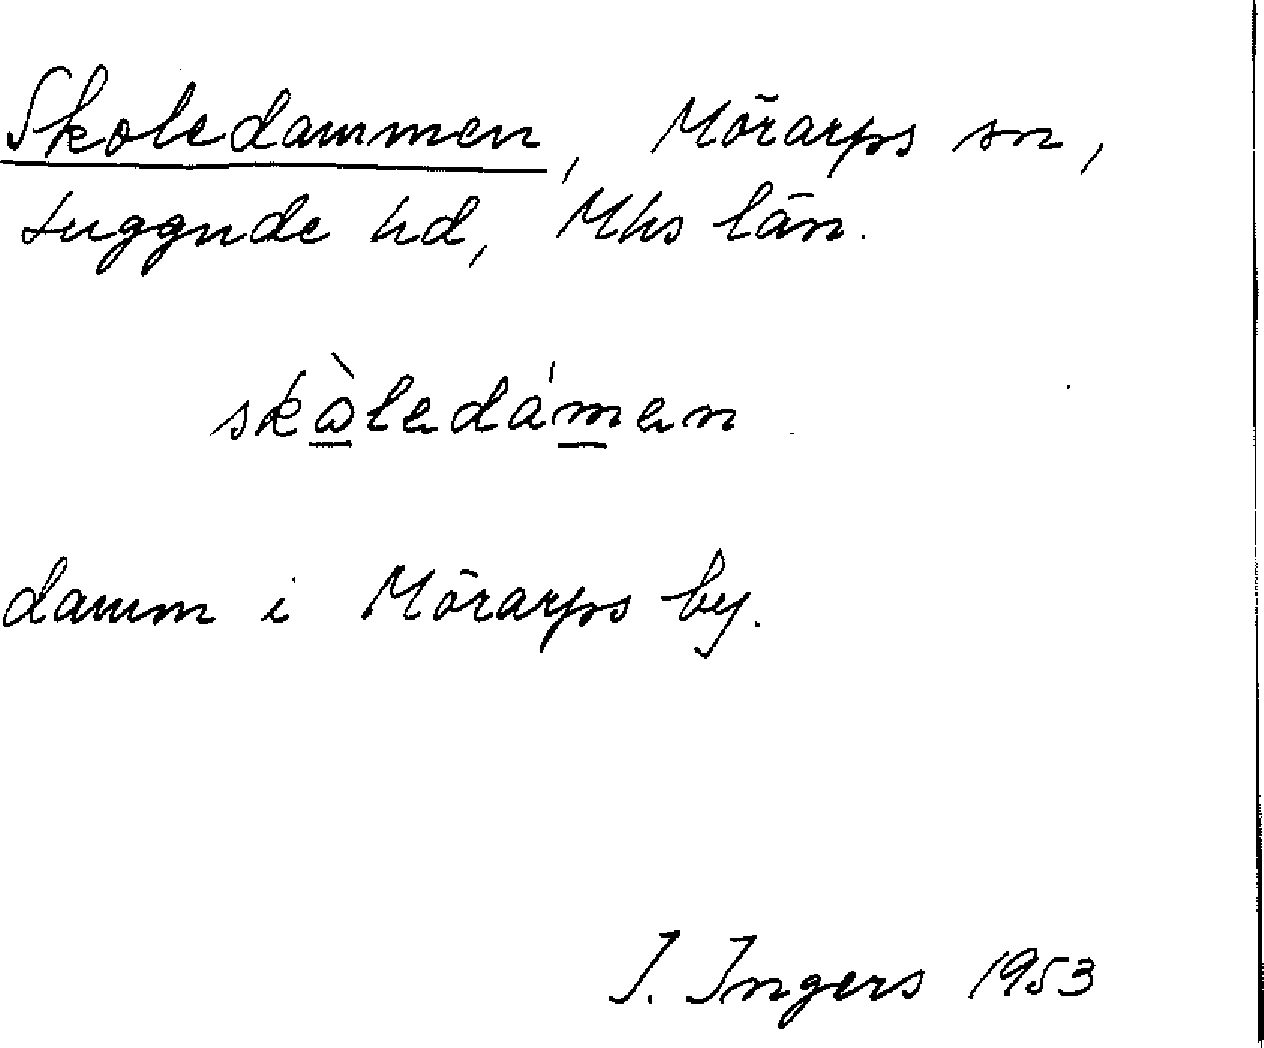 Skoledammen, Mörarps sn,
Luggude hd, Mhs län.
skὼledámen
damm i Mörarps by.
I. Ingers 1953